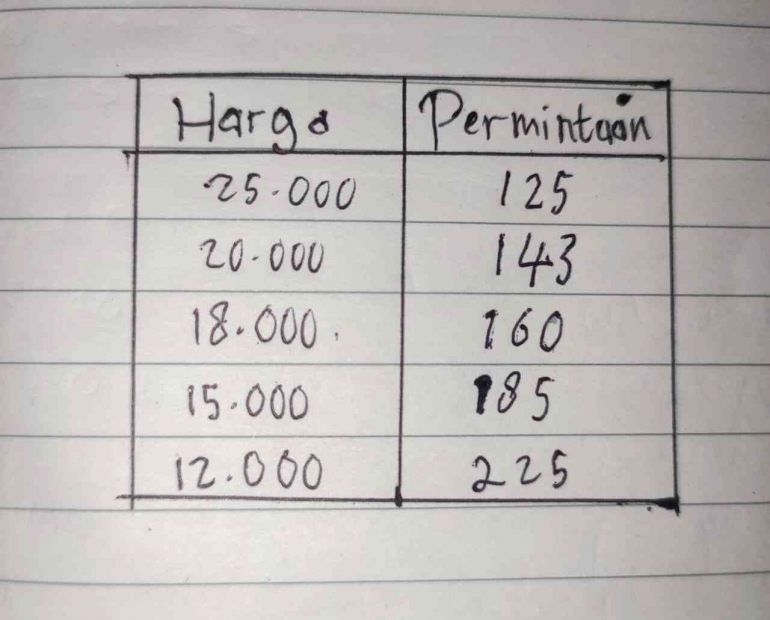 Harga Permintaan
25.000 125
20.000 143
18.000. 160
15.000 185
12.000 225